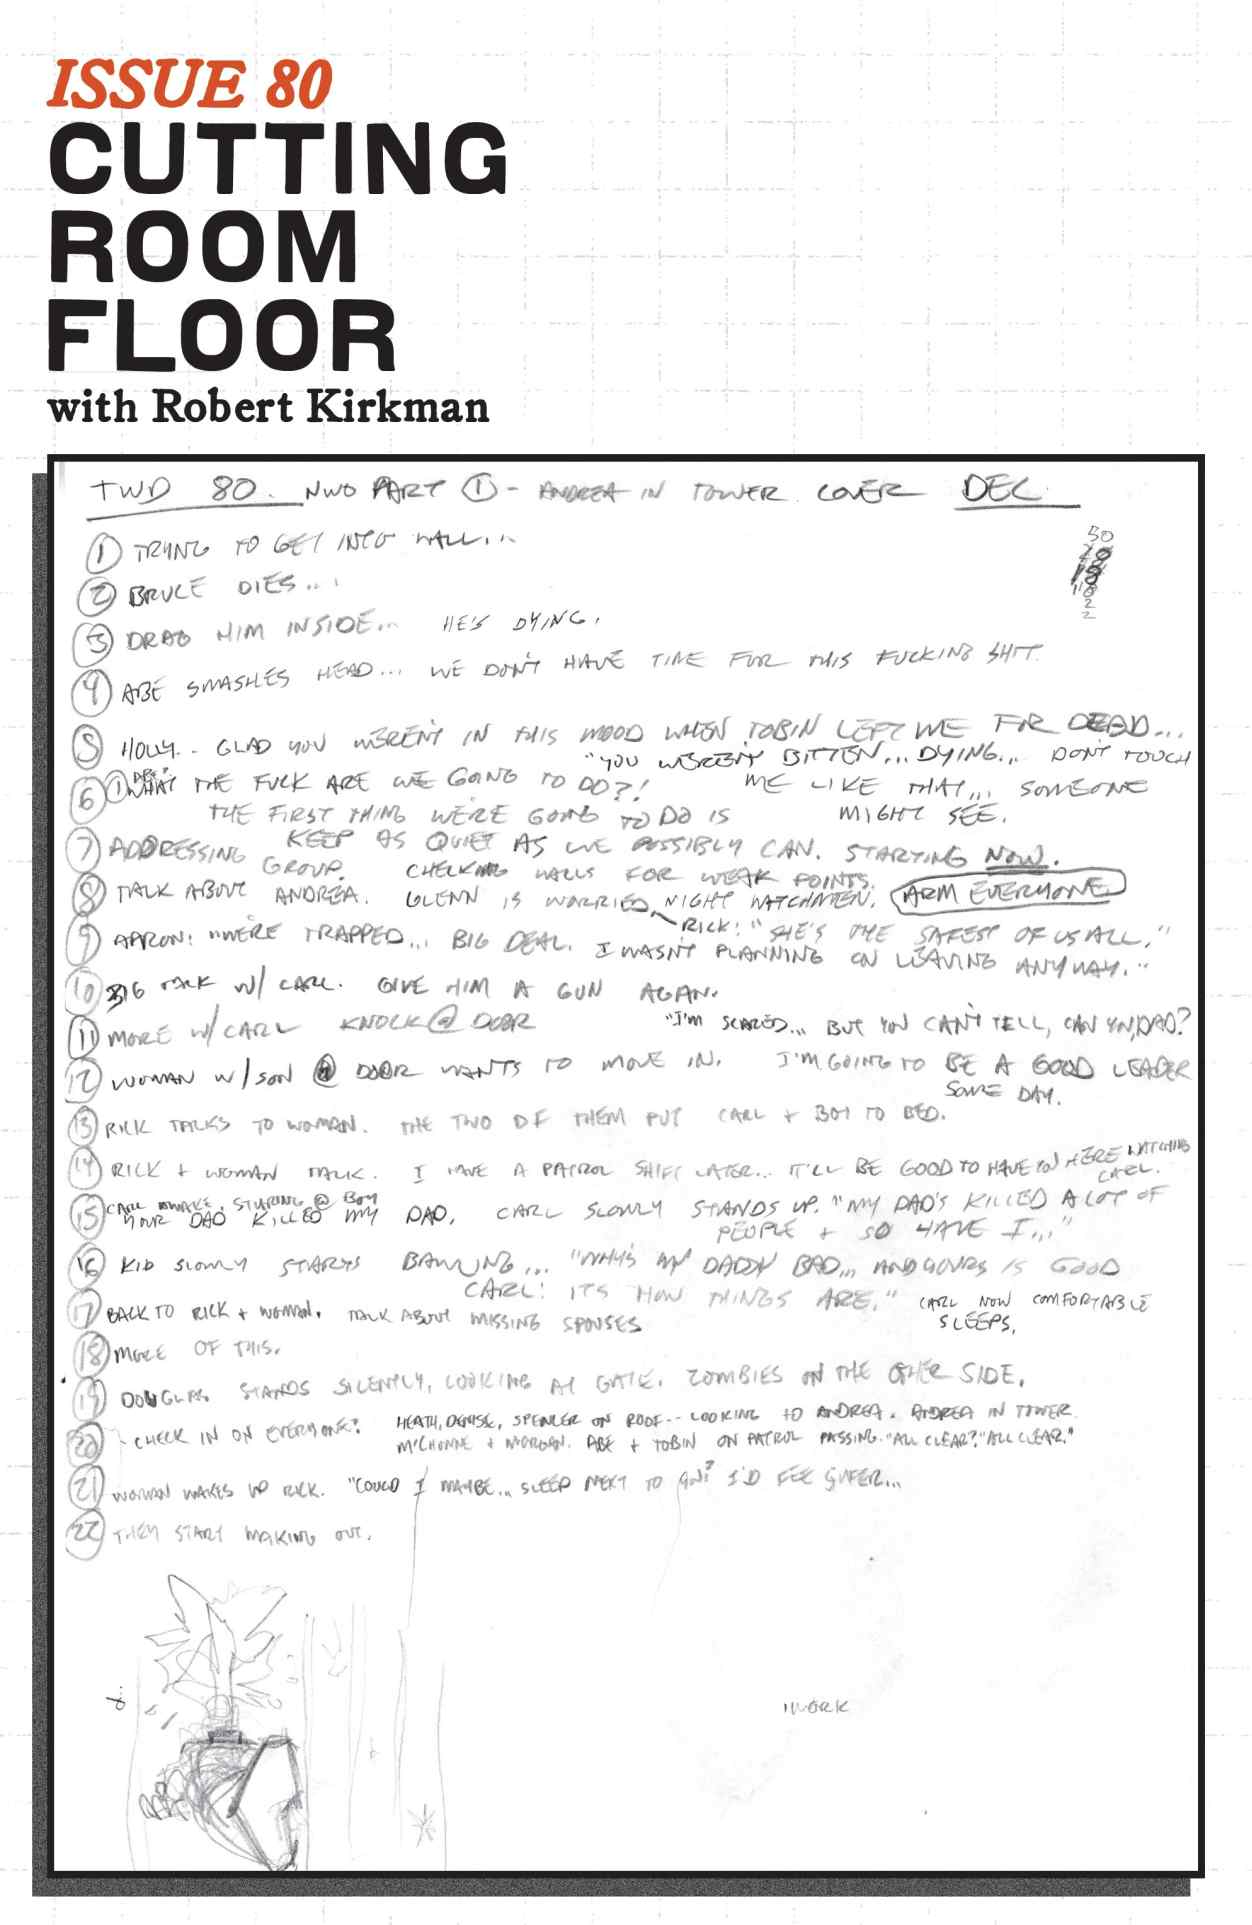 ISSUE 80
CUTTING
ROOM
FLOOR
with Robert Kirkman
TWD 80. NWO PART ① - ANDREA IN TOWER COVER DEC
30
2
2
① TRYING TO GET INTO WALL...
② BRUCE DIES...
③ DRAG HIM INSIDE... HE'S DYING.
④ ABE SMASHES HEAD... WE DON'T HAVE TIME FOR THIS FUCKING SHIT.
⑤ HOLLY.. GLAD YOU WEREN'T IN THIS MOOD WHEN TOBIN LEFT ME FOR DEAD...
"YOU WEREN'T BITTEN... DYING... DON'T TOUCH
ME LIKE THAT... SOMEONE
MIGHT SEE.
⑥ WHAT THE FUCK ARE WE GOING TO DO?!
THE FIRST THING WE'RE GOING TO DO IS
KEEP AS QUIET AS WE POSSIBLY CAN. STARTING NOW.
⑦ ADDRESSING GROUP. CHECKING WALLS FOR WEAK POINTS.
NIGHT WATCHMEN. ARM EVERYONE.
⑧ TALK ABOUT ANDREA. GLENN IS WORRIED
RICK: "SHE'S THE SAFEST OF US ALL."
⑨ APRON: "WE'RE TRAPPED... BIG DEAL. I WASN'T PLANNING ON LEAVING ANYWAY."
⑩ BIG TALK W/ CARL. GIVE HIM A GUN AGAIN.
⑪ MORE W/ CARL KNOCK @ DOOR "I'M SCARED... BUT YOU CAN'T TELL, CAN YOU, DAD?
I'M GOING TO BE A GOOD LEADER
SOME DAY.
⑫ WOMAN W/ SON @ DOOR WANTS TO MOVE IN.
⑬ RICK TALKS TO WOMAN. THE TWO OF THEM PUT CARL + BOY TO BED.
⑭ RICK + WOMAN TALK. I HAVE A PATROL SHIFT LATER... IT'LL BE GOOD TO HAVE YOU HERE WATCHING
CARL.
⑮ CARL AWAKE. STARING @ BOY
YOUR DAD KILLED MY DAD. CARL SLOWLY STANDS UP. "MY DAD'S KILLED A LOT OF
PEOPLE + SO HAVE I..."
⑯ KID SLOWLY STARTS BAWLING... "WHY'S MY DADDY BAD... AND YOURS IS GOOD
CARL: ITS HOW THINGS ARE." CARL NOW COMFORTABLE
SLEEPS.
⑰ BACK TO RICK + WOMAN. TALK ABOUT MISSING SPOUSES
⑱ MORE OF THIS.
⑲ DOUGLAS STANDS SILENTLY, LOOKING AT GATE. ZOMBIES ON THE OTHER SIDE.
⑳ CHECK IN ON EVERYONE? HEATH, DENISE, SPENCER ON ROOF-- LOOKING TO ANDREA. ANDREA IN TOWER
MICHONNE + MORGAN. ABE + TOBIN ON PATROL PASSING. "ALL CLEAR?" "ALL CLEAR."
㉑ WOMAN WAKES UP RICK. "COULD I MAYBE... SLEEP NEXT TO YOU? I'D FEEL SAFER...
㉒ THEY START MAKING OUT.
WORK